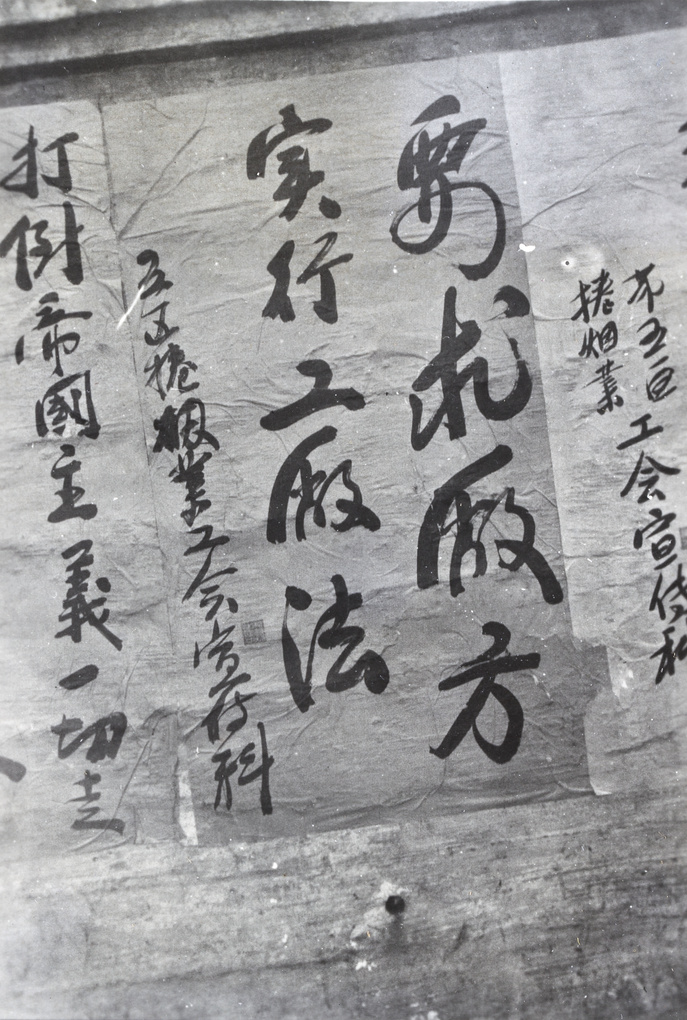 第五区工会宣传科
捲烟業
要求厰方
实行工厰法
五区捲烟業工会宣传科
打倒帝國主義一切走